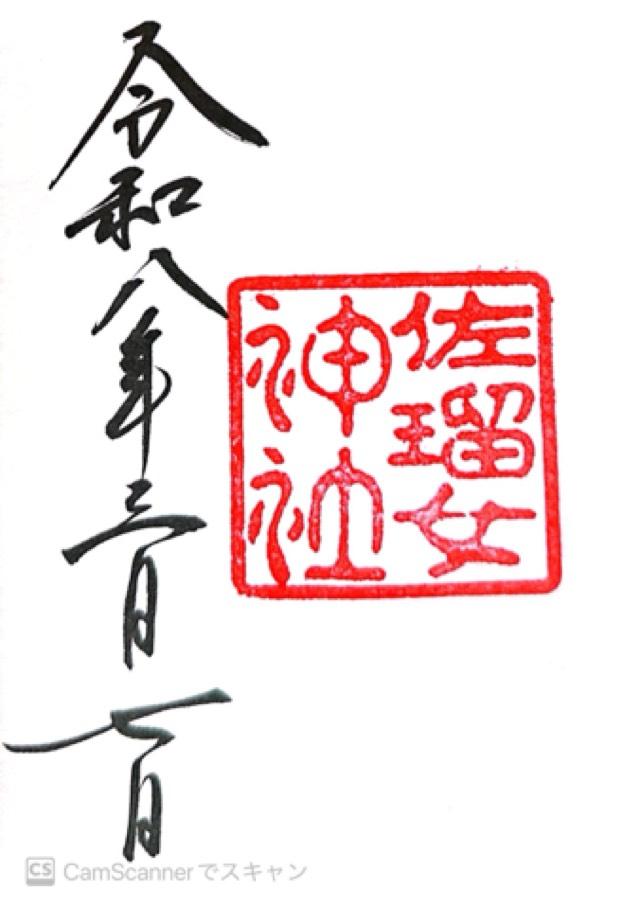 佐瑠女
神社
令和八年三月七日
CS CamScannerでスキャン